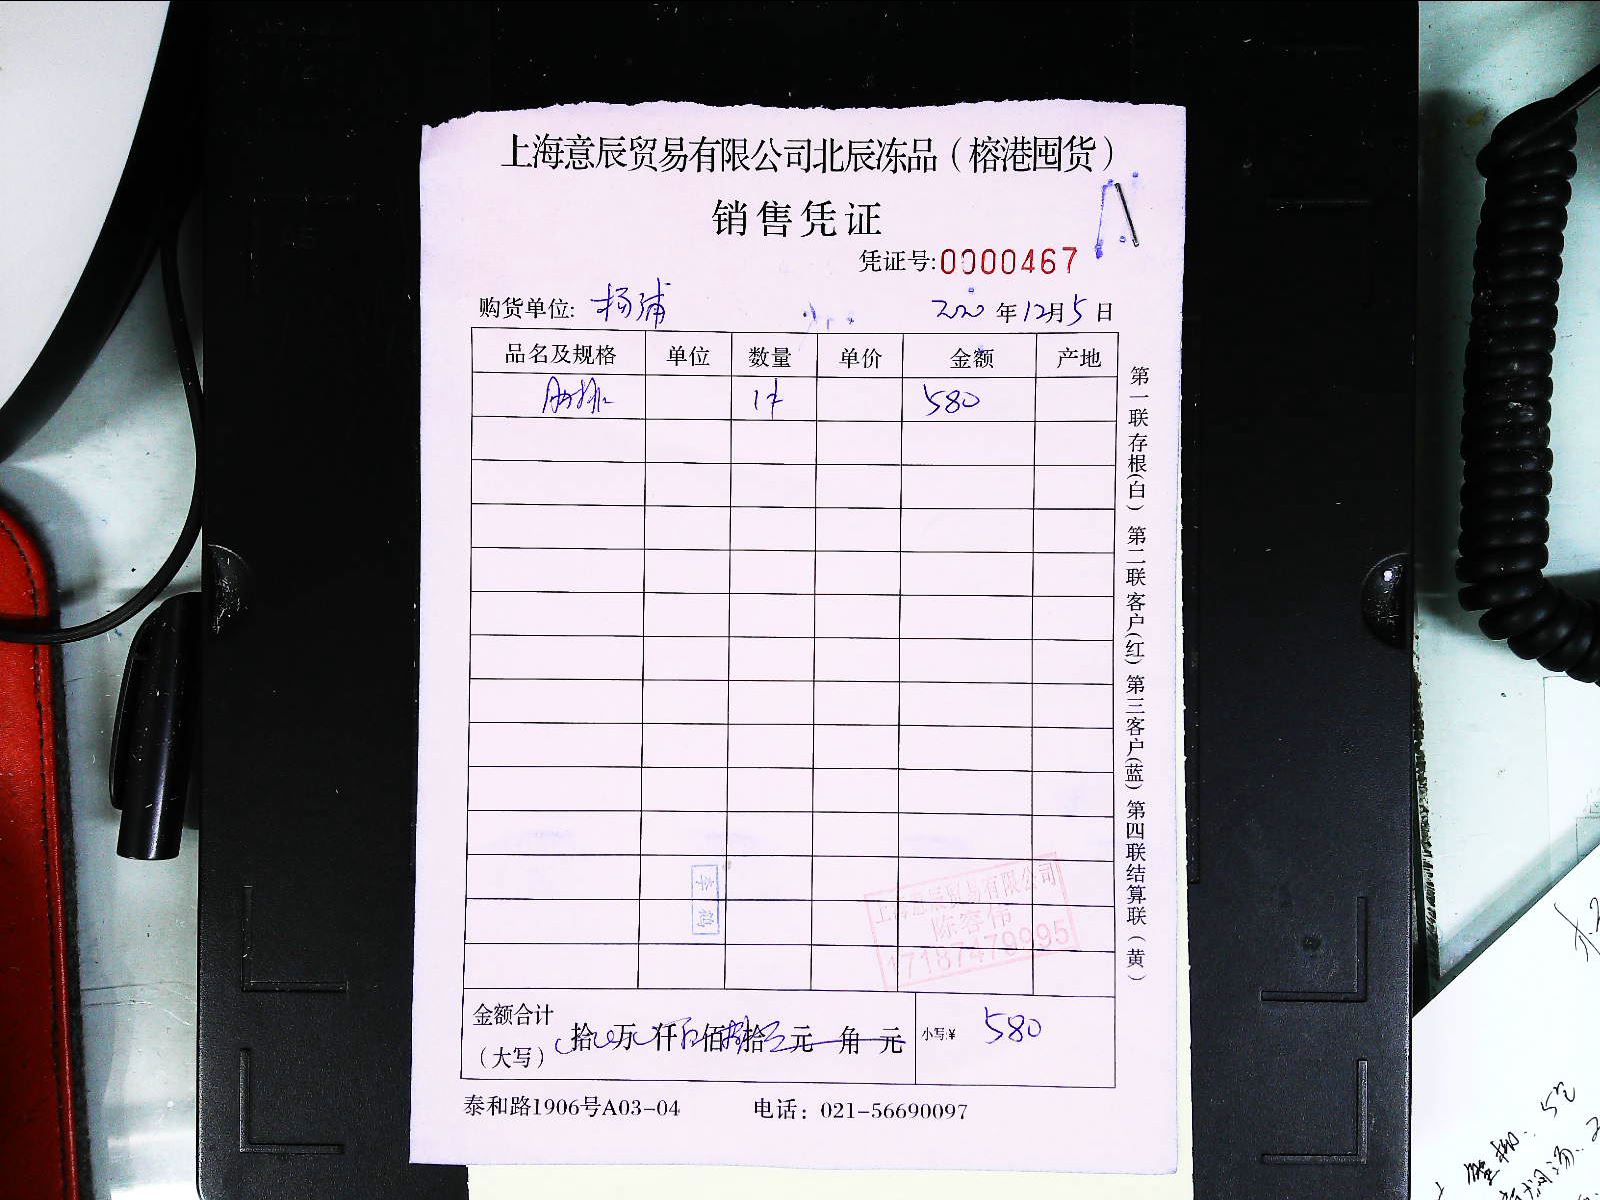 上海意辰贸易有限公司北辰冻品（榕港囤货）
销售凭证
凭证号:0000467
购货单位: 杨浦 2020 年 12月 5 日
品名及规格 单位 数量 单价 金额 产地
肋排 1件 580
第一联存根(白) 第二联客户(红) 第三客户(蓝) 第四联结算联(黄)
上海意辰贸易有限公司
陈容伟
17187479995
金额合计（大写） 拾 万 仟 伍 佰 捌 拾 元 角 元 小写:¥ 580
泰和路1906号A03-04 电话：021-56690097